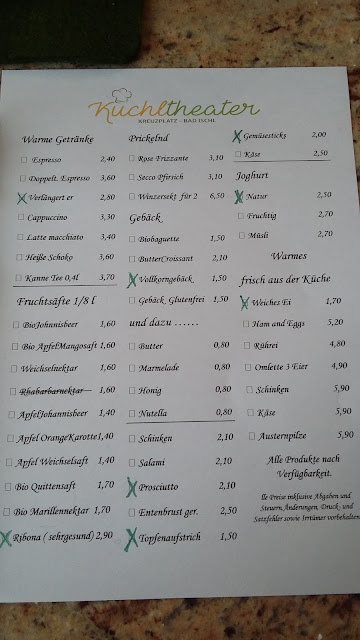 Kuchltheater
KREUZPLATZ - BAD ISCHL
Warme Getränke
Espresso 2,40
Doppelt. Espresso 3,60
Verlängert er 2,80
Cappuccino 3,30
Latte macchiato 3,40
Heiße Schoko 3,60
Kanne Tee 0,4l 3,70
Fruchtsäfte 1/8 l
BioJohnnisbeer 1,60
Bio ApfelMangosaft 1,60
Weichselnektar 1,60
Rhabarbarnektar 1,60
ApfelJohannisbeer 1,40
Apfel OrangeKarotte 1,40
Apfel Weichselsaft 1,40
Bio Quittensaft 1,70
Bio Marillennektar 1,70
Ribona ( sehrgesund) 2,90
Prickelnd
Rose Frizzante 3,10
Secco Pfirsich 3,10
Winzersekt für 2 6,50
Gebäck
Biobaguette 1,50
ButterCroissant 2,10
Vollkorngebäck 1,50
Gebäck Glutenfrei 1,50
und dazu ......
Butter 0,80
Marmelade 0,80
Honig 0,80
Nutella 0,80
Schinken 2,10
Salami 2,10
Prosciutto 2,10
Entenbrust ger. 2,50
Topfenaufstrich 1,50
Gemüsesticks 2,00
Käse 2,50
Joghurt
Natur 2,50
Fruchtig 2,70
Müsli 2,70
Warmes
frisch aus der Küche
Weiches Ei 1,70
Ham and Eggs 5,20
Rührei 4,80
Omlette 3 Eier 4,90
Schinken 5,90
Käse 5,90
Austernpilze 5,90
Alle Produkte nach
Verfügbarkeit.
lle Preise inklusive Abgaben und
Steuern, Änderungen, Druck- und
Satzfehler sowie Irrtümer vorbehalten